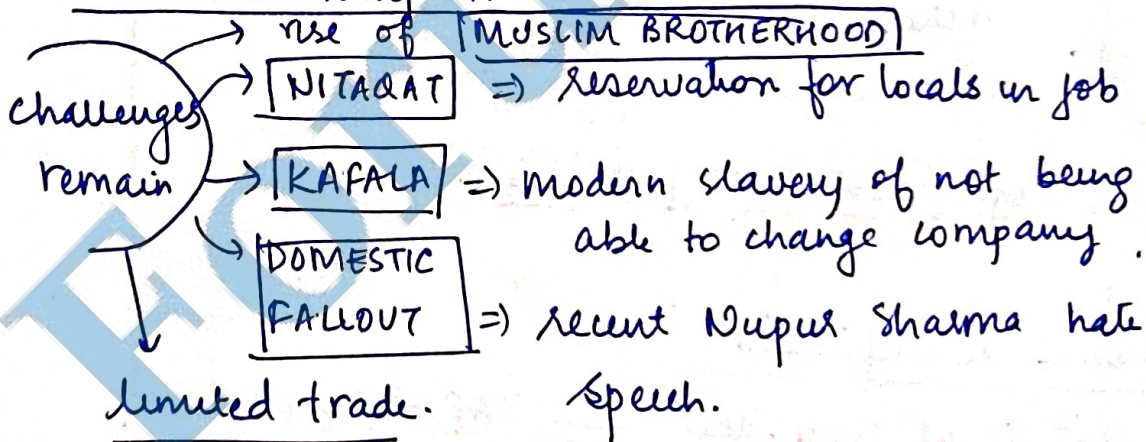 → rise of MUSLIM BROTHERHOOD
challenges remain
→ NITAQAT => reservation for locals in job
→ KAFALA => modern slavery of not being
able to change company.
→ DOMESTIC
FALLOUT => recent Nupur Sharma hate
speech.
limited trade.